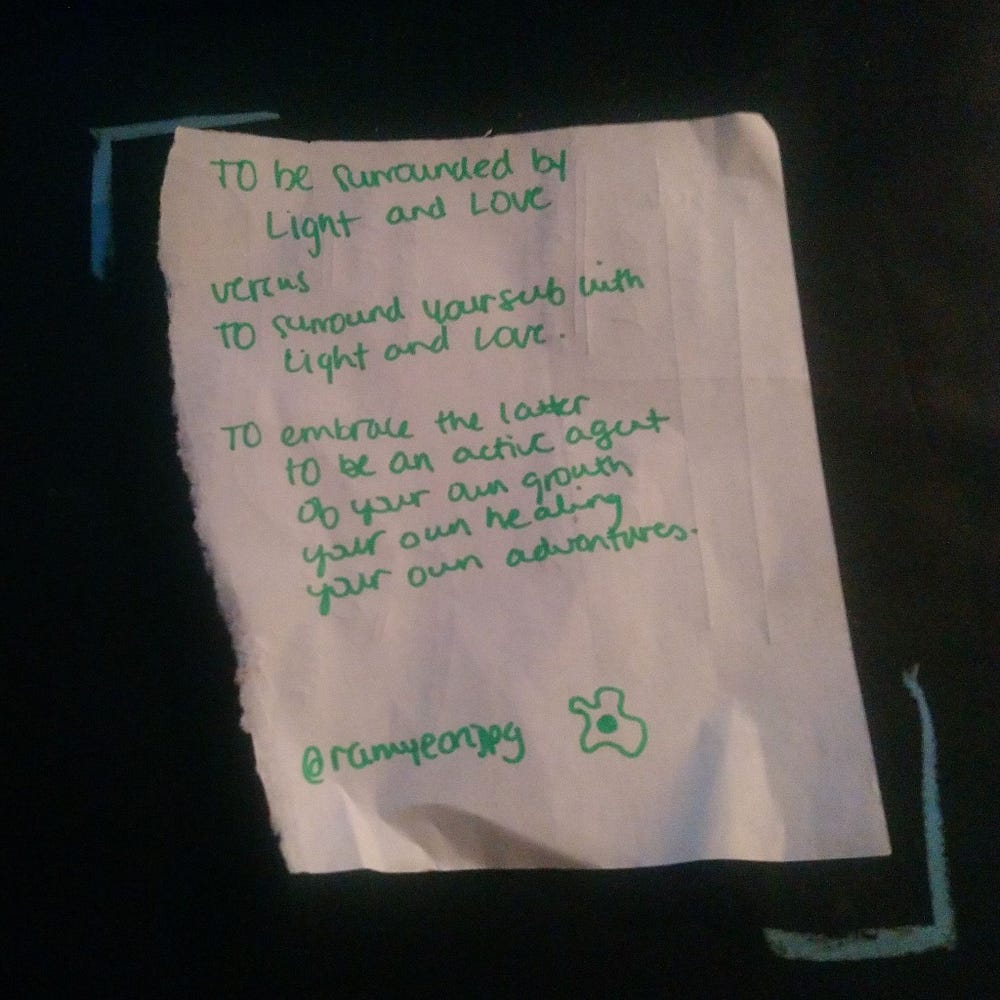 TO be surrounded by
Light and LOVE
versus
TO surround yourself with
Light and LOVE.
TO embrace the latter
to be an active agent
of your own growth
your own healing
your own adventures.
@ramyeonjpg